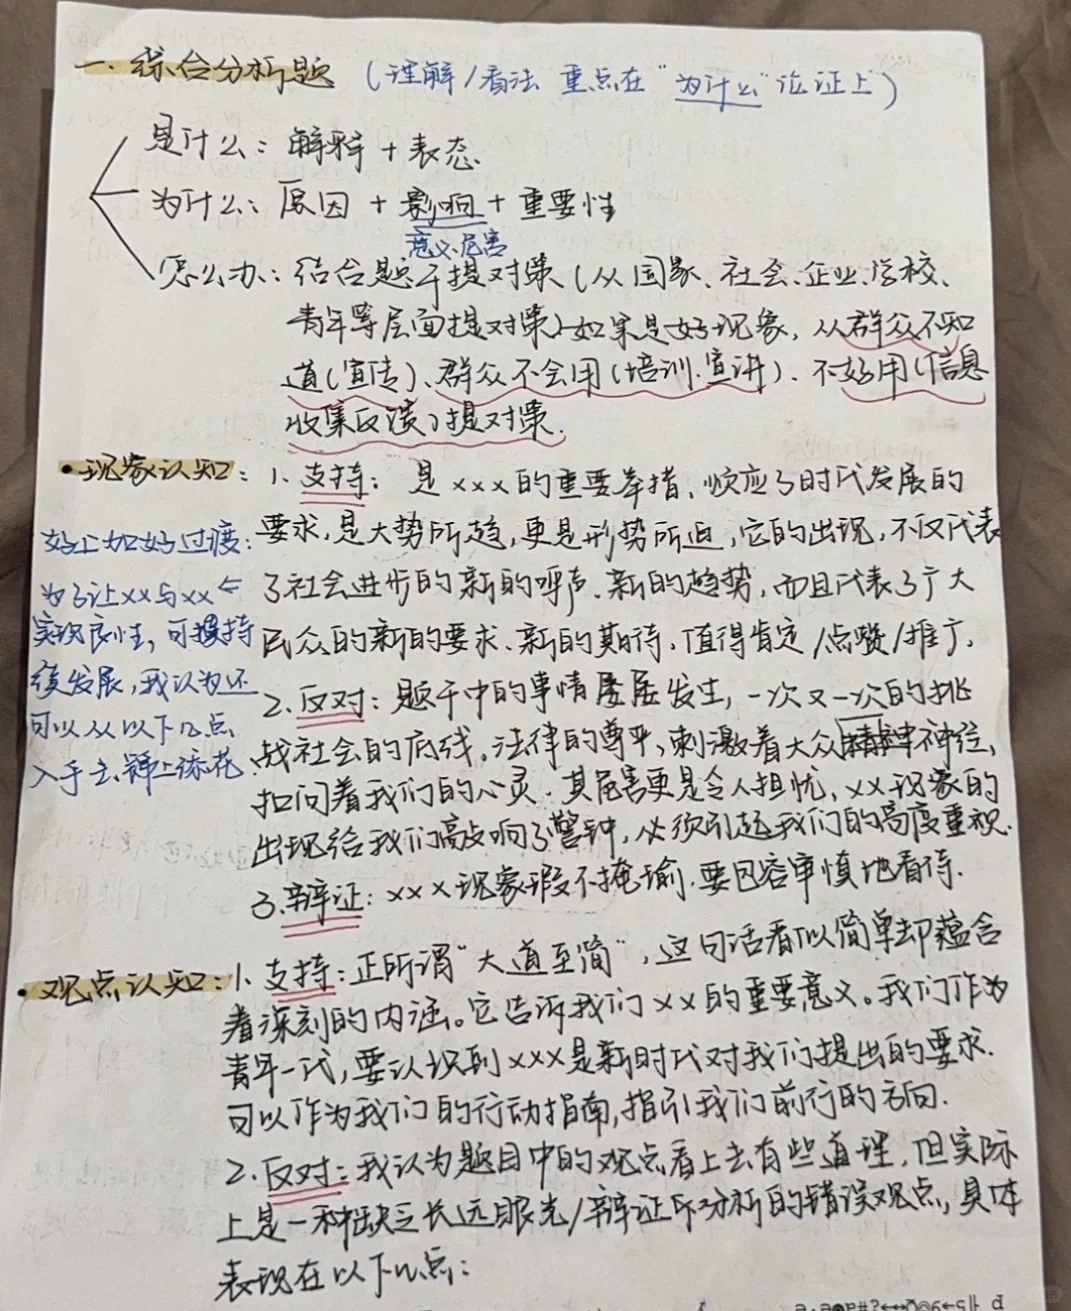 一. 综合分析题 (理解/看法 重点在"为什么"论证上)
是什么: 解释 + 表态
为什么: 原因 + 影响 + 重要性
意义、危害
怎么办: 结合题干提对策 (从国家、社会、企业、学校、
青年等层面提对策) 如果是好现象, 从群众不知
道(宣传)、群众不会用(培训、宣讲)、不好用(信息
收集反馈)提对策.
• 现象认知: 1. 支持: 是×××的重要举措, 顺应了时代发展的
要求, 是大势所趋, 更是形势所迫, 它的出现, 不仅代表
了社会进步的新的呼声、新的趋势, 而且代表了广大
民众的新的要求、新的期待, 值得肯定/点赞/推广,
好上加好过渡:
为了让××与××
实现良性, 可持
续发展, 我认为还
可以从以下几点
入手去锦上添花.
2. 反对: 题干中的事情屡屡发生, 一次又一次的挑
战社会的底线, 法律的尊严, 刺激着大众神经,
扣问着我们的心灵. 其危害更是令人担忧, ××现象的
出现给我们敲响了警钟, 必须引起我们的高度重视.
3. 辩证: ×××现象瑕不掩瑜. 要包容审慎地看待.
• 观点认知: 1. 支持: 正所谓"大道至简", 这句话看似简单却蕴含
着深刻的内涵。它告诉我们××的重要意义。我们作为
青年一代, 要认识到×××是新时代对我们提出的要求.
可以作为我们的行动指南, 指引我们前行的方向.
2. 反对: 我认为题目中的观点看上去有些道理, 但实际
上是一种缺乏长远眼光/辩证分析的错误观点, 具体
表现在以下几点: